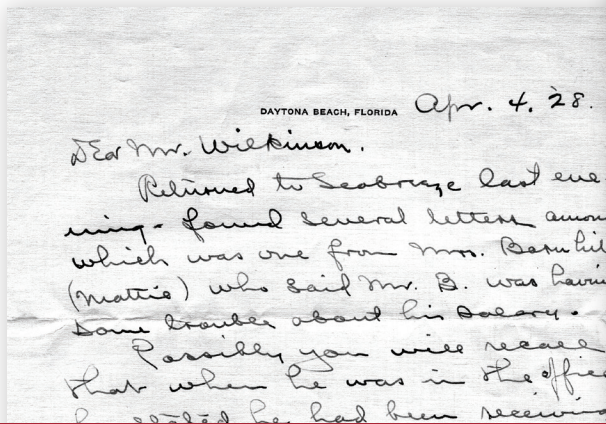 DAYTONA BEACH, FLORIDA Apr. 4. '28.
Dear Mr. Wilkinson.
Returned to Seabreeze last eve-
ning - found several letters amon
which was one from Mrs. Barnhil
(Mattie) who said Mr. B. was havin
some trouble about his salary.
Possibly you will recall
that when he was in the office
he stated he had been receiving